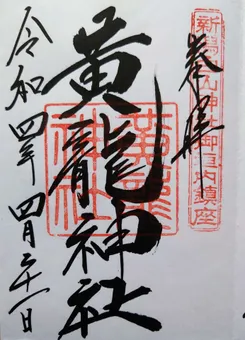 奉拝
新潟白山神社御垣内鎮座
黄龍神社
黄龍神社
令和四年四月二十一日